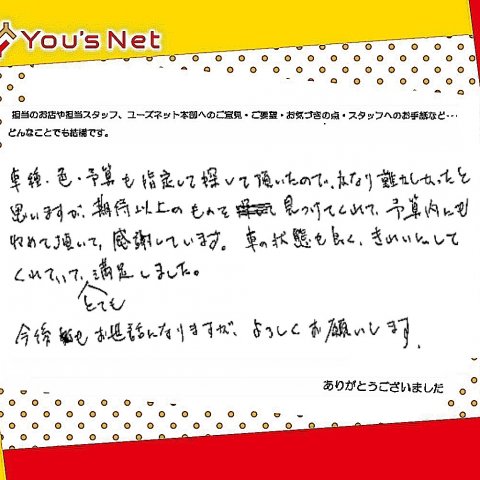 You's Net
担当のお店や担当スタッフ、ユーズネット本部へのご意見・ご要望・お気づきの点・スタッフへのお手紙など…
どんなことでも結構です。
車種・色・予算も指定して探して頂いたので、かなり難しかったと
思いますが、期待以上のものを見つけてくれて、予算内にも
収めて頂いて、感謝しています。車の状態も良く、きれいにして
くれていて、とても満足しました。
今後もお世話になりますが、よろしくお願いします。
ありがとうございました